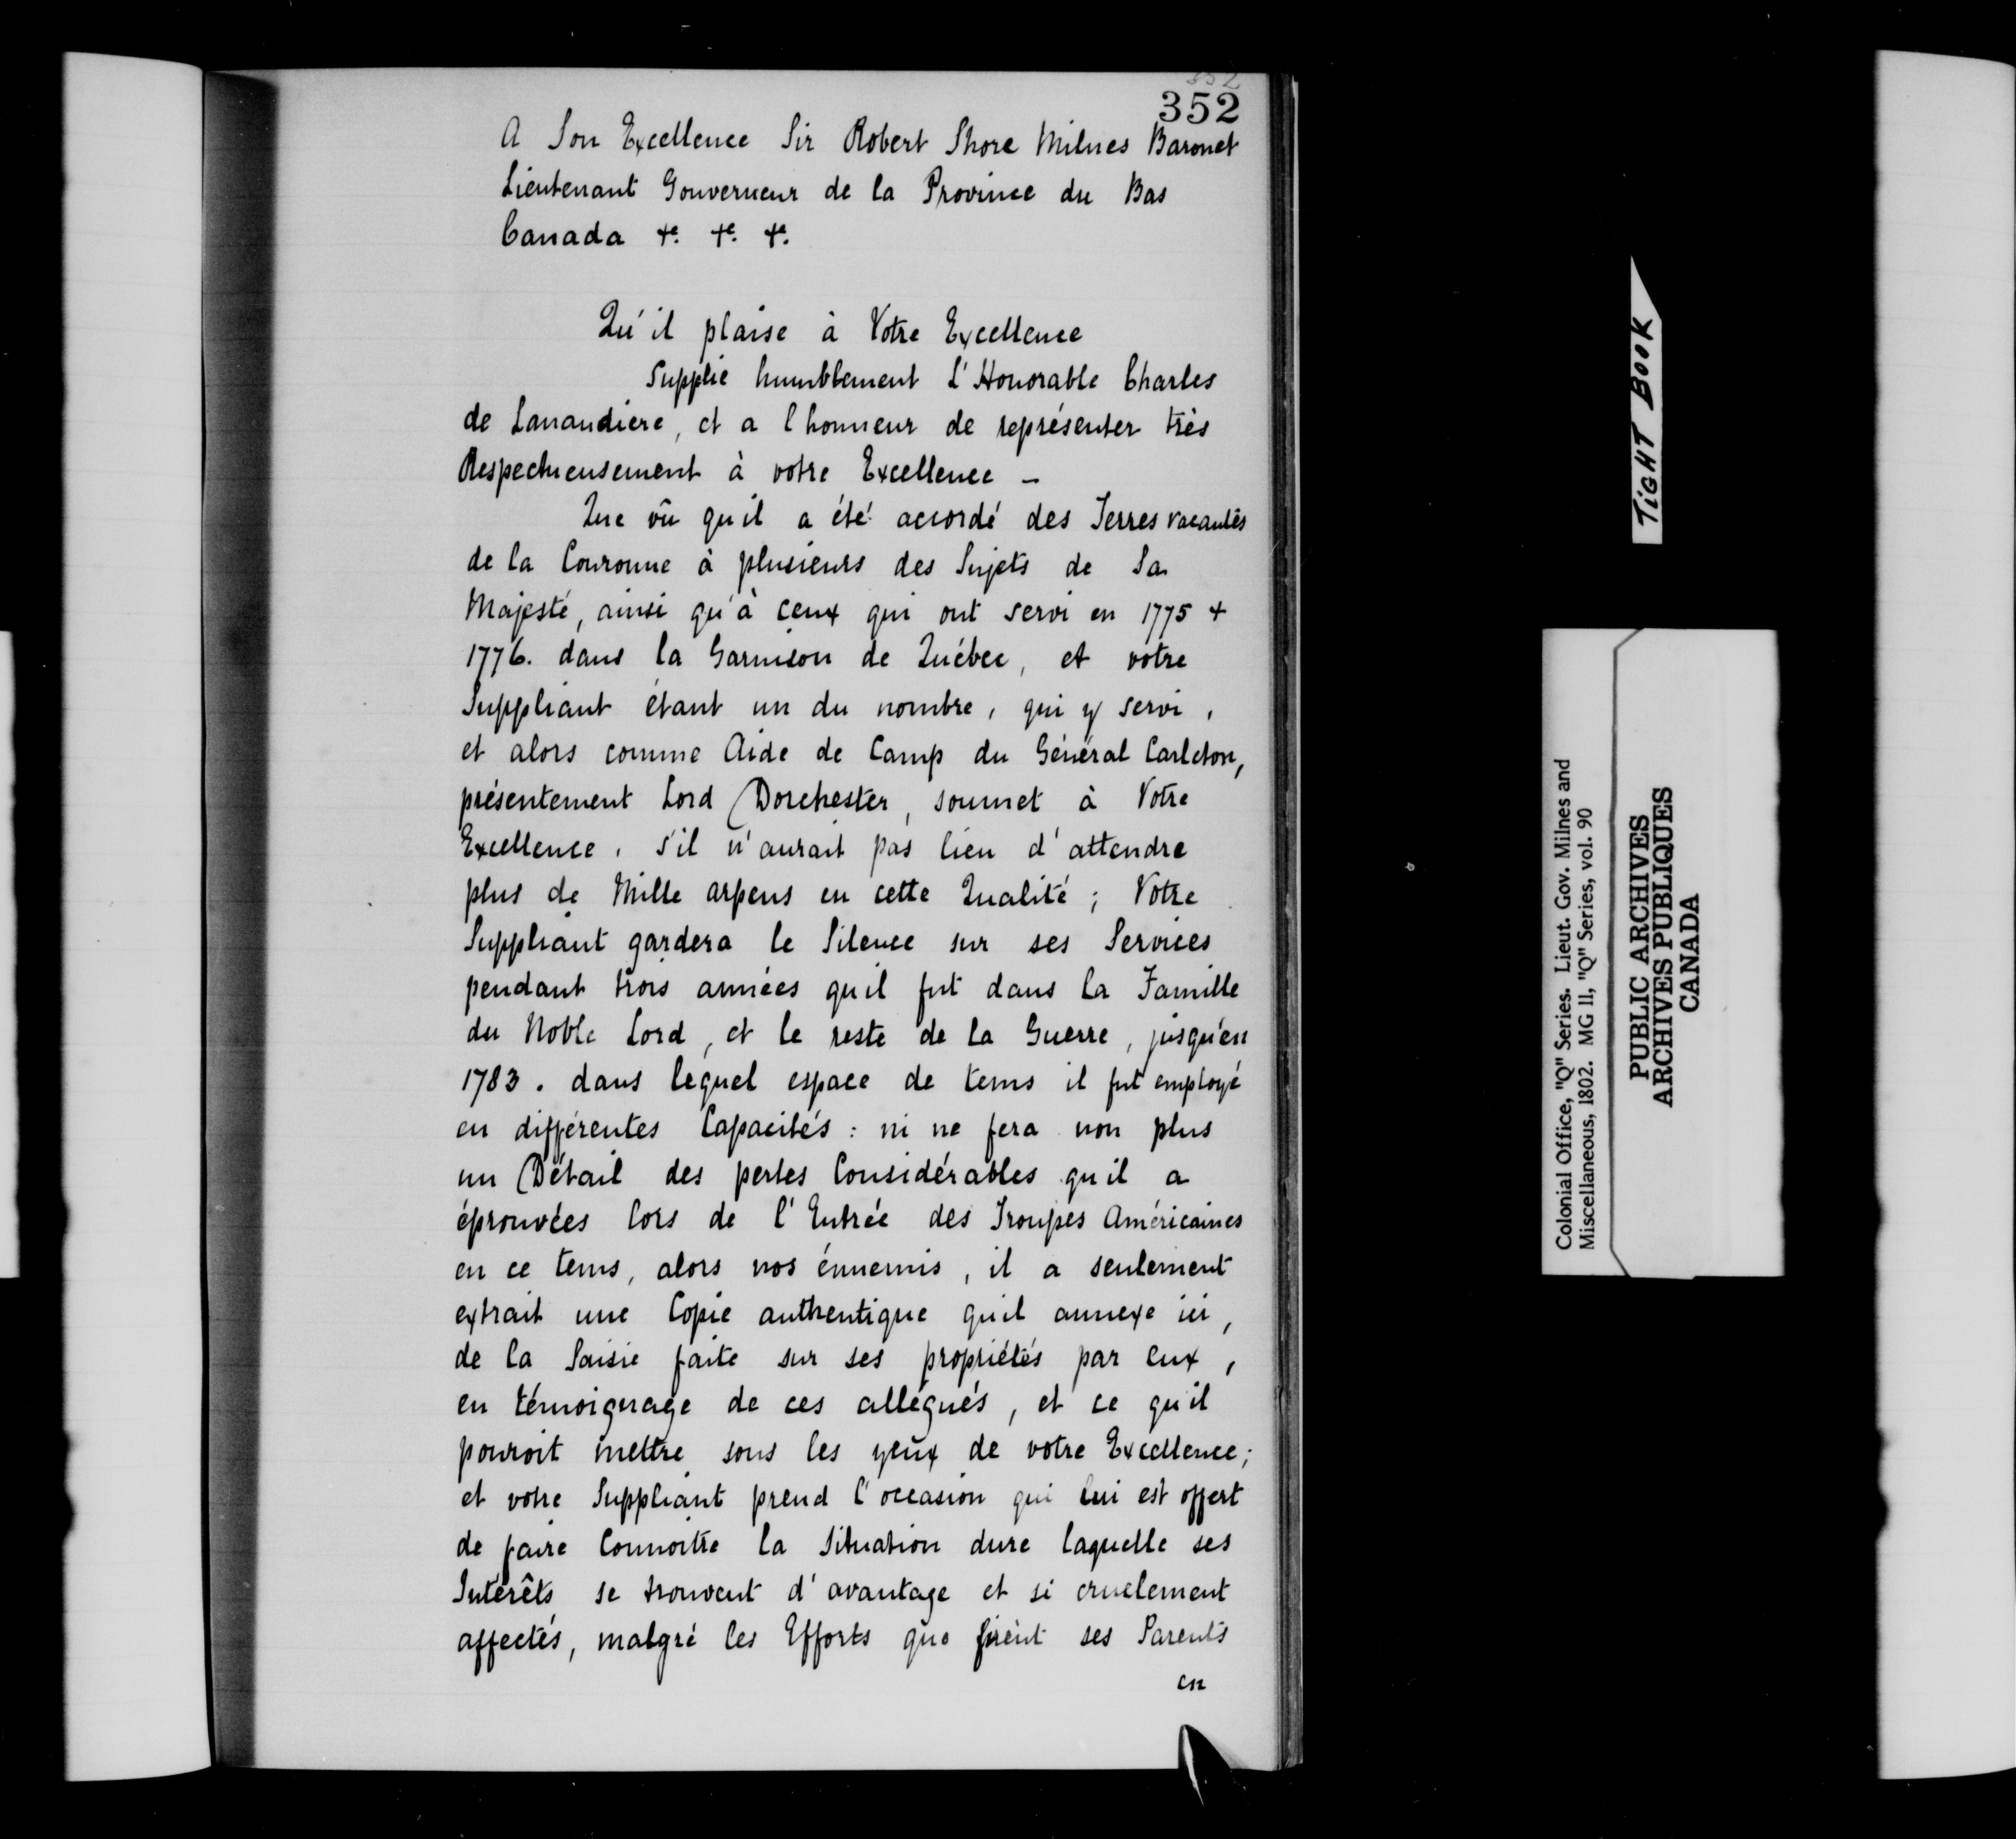 352
352
A Son Excellence Sir Robert Shore Milnes Baronet
Lieutenant Gouverneur de la Province du Bas
Canada &c. &c. &c.
Qu'il plaise à Votre Excellence
Supplie humblement L'Honorable Charles
de Lanaudiere, et a l honneur de représenter très
Respectueusement à votre Excellence –
Que vû qu'il a été accordé des Terres vacantes
de la Couronne à plusieurs des Sujets de Sa
Majesté, ainsi qu'à ceux qui ont servi en 1775 &
1776. dans la Garnison de Québec, et votre
Suppliant étant un du nombre, qui y servi,
et alors comme Aide de Camp du Général Carleton,
présentement Lord Dorchester, soumet à Votre
Excellence, s'il n'aurait pas lieu d'attendre
plus de Mille arpens en cette Qualité; Votre
Suppliant gardera le Silence sur ses Services
pendant trois années qu'il fut dans la Famille
du Noble Lord, et le reste de la Guerre, jusqu'en
1783. dans lequel espace de tems il fut employé
en différentes Capacités: ni ne fera non plus
un Détail des pertes Considérables qu'il a
éprouvées lors de l'Entrée des Troupes Américaines
en ce tems, alors nos énnemis, il a seulement
extrait une Copie authentique qu'il annexe ici,
de la Saisie faite sur ses propriétés par eux,
en témoignage de ces allégués, et ce qu'il
pouroit mettre sous les yeux de votre Excellence;
et votre Suppliant prend l'occasion qui lui est offert
de faire Connoitre la Situation dure laquelle ses
Intérêts se trouvent d'avantage et si cruelement
affectés, malgré les Efforts que firent ses Parents
en
TIGHT BOOK
Colonial Office, "Q" Series. Lieut. Gov. Milnes and
Miscellaneous, 1802. MG 11, "Q" Series, vol. 90
PUBLIC ARCHIVES
ARCHIVES PUBLIQUES
CANADA